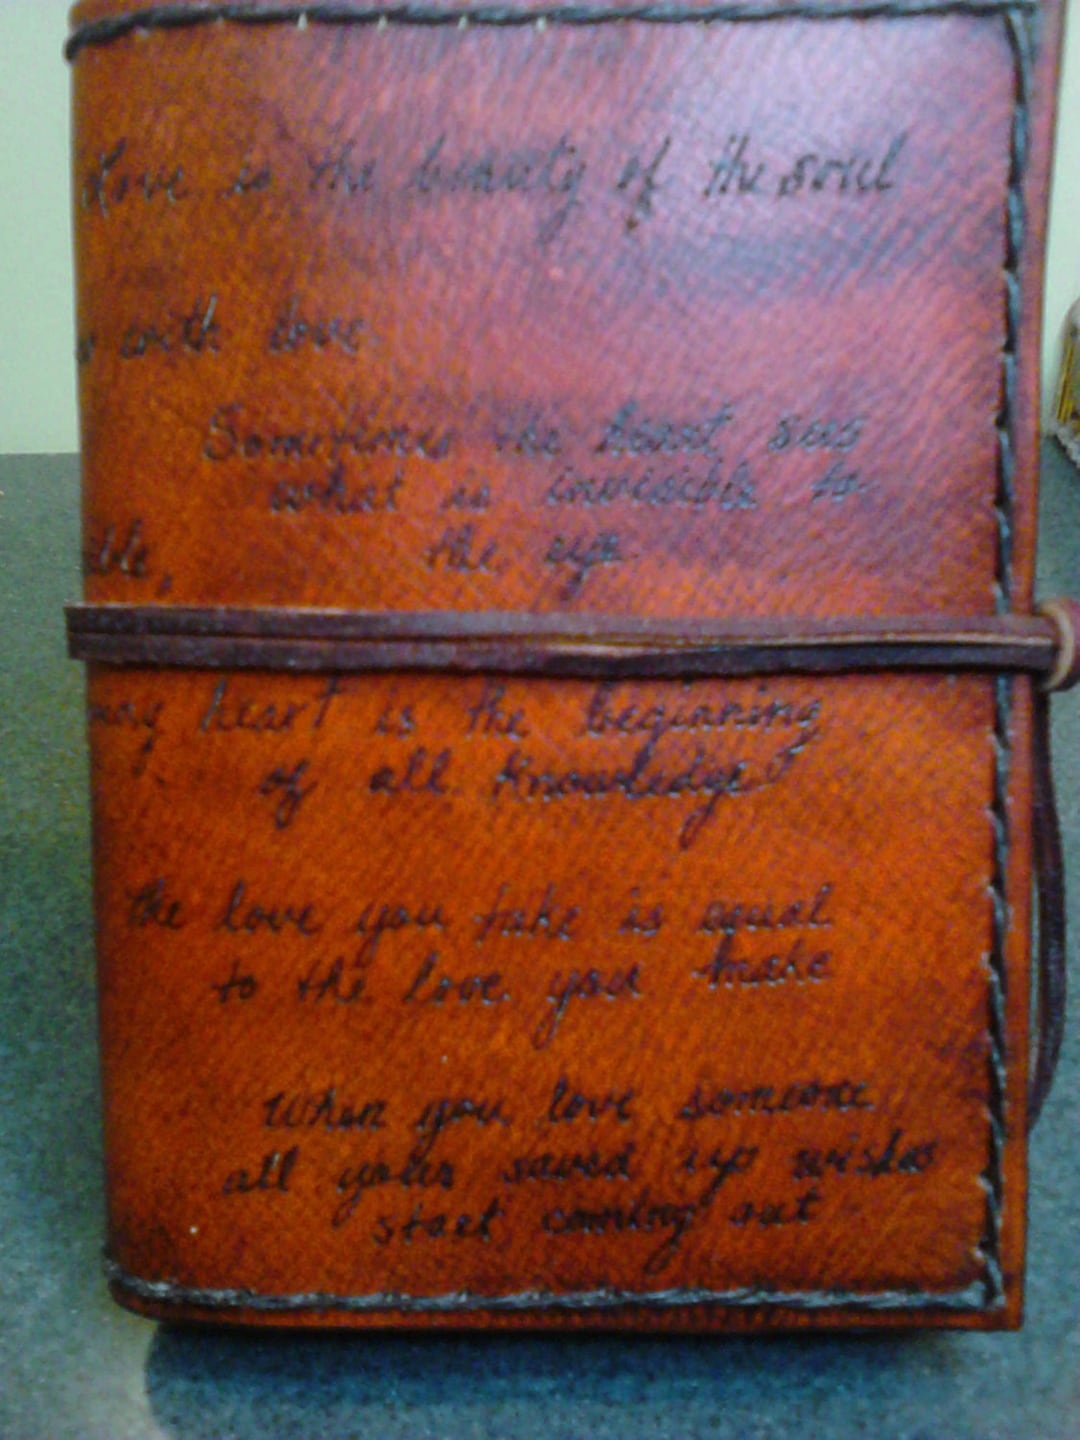 Love is the beauty of the soul
with love
Sometimes the heart sees
what is invisible to
ble,
the eye
heart is the beginning
of all knowledge
the love you take is equal
to the love you make
When you love someone
all your saved up wishes
start coming out